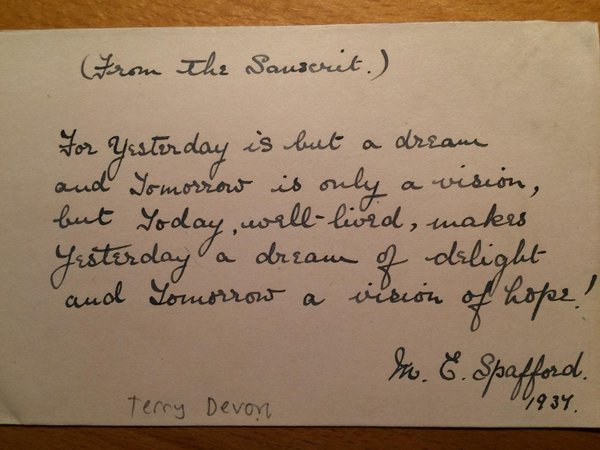 (From the Sanscrit.)
For Yesterday is but a dream
and Tomorrow is only a vision,
but Today, well-lived, makes
Yesterday a dream of delight
and Tomorrow a vision of hope!
M. E. Spafford.
1937.
Terry Devon